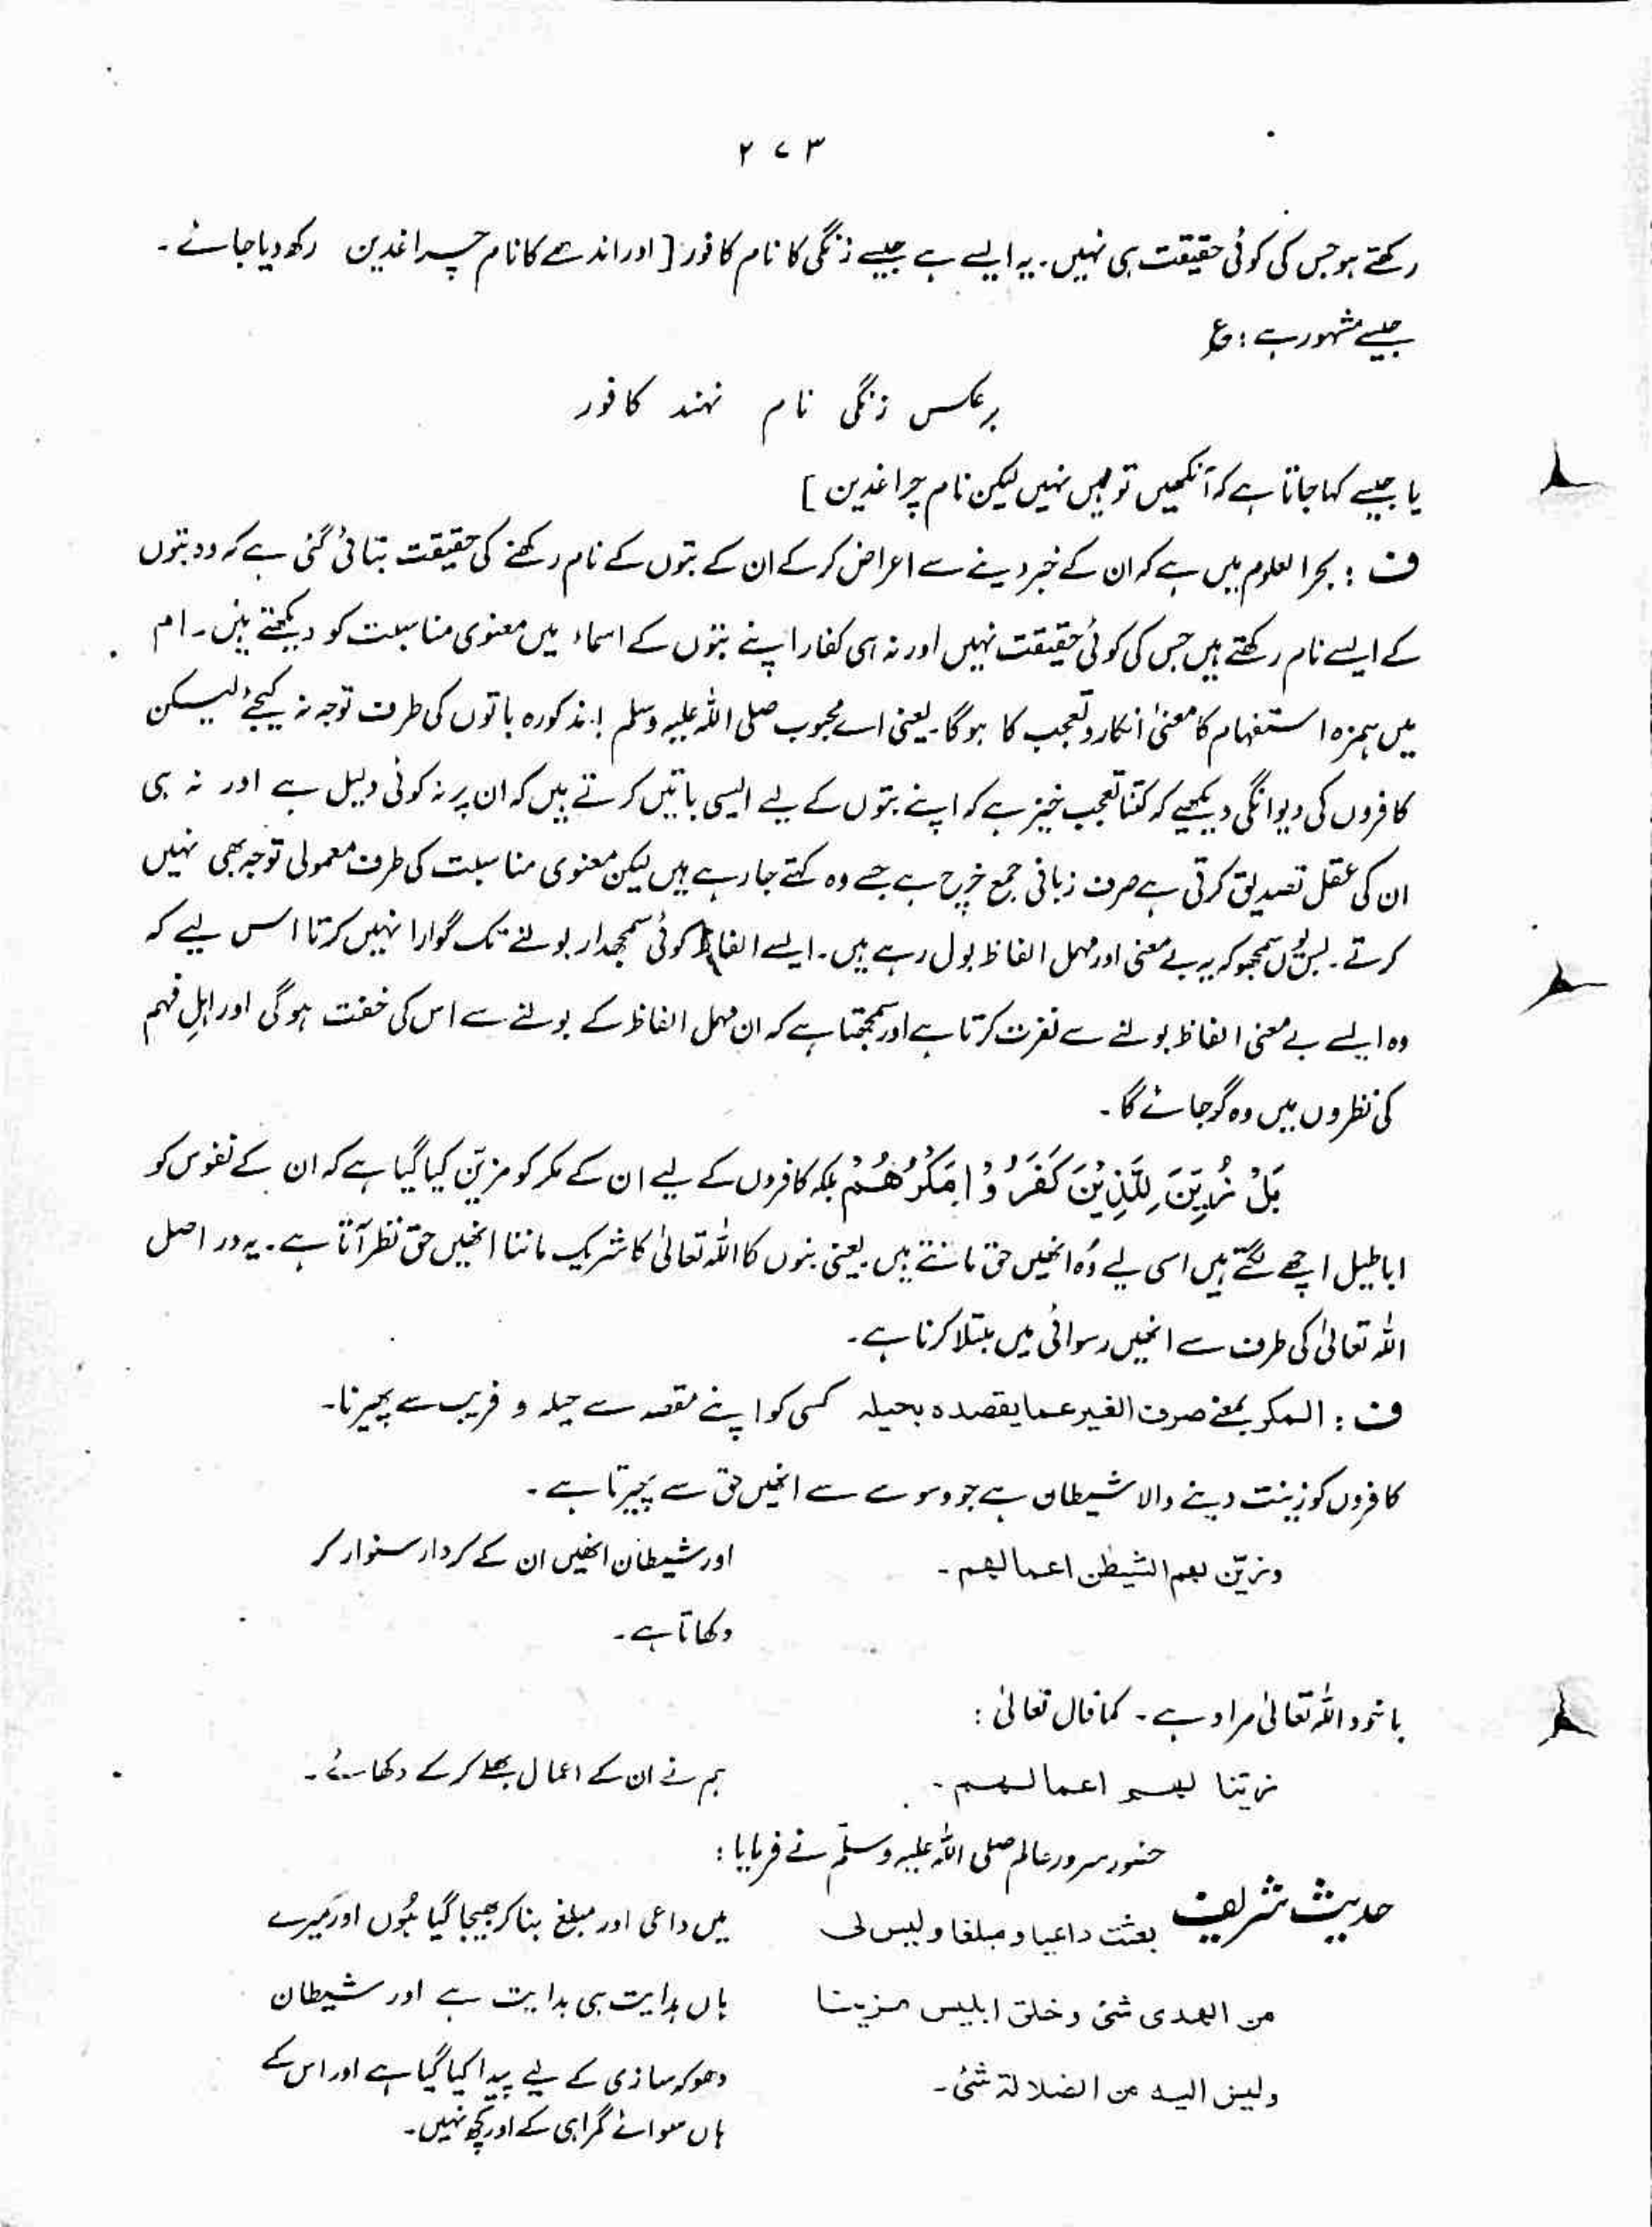 ۲۷۳
رکھتے ہو جس کی کوئی حقیقت ہی نہیں۔ یہ ایسے ہے جیسے زنگی کا نام کافور [ اور اندھے کا نام چراغدین رکھ دیا جائے۔
جیسے مشہور ہے : ع
برعکس زنگی نام نہند کافور
یا جیسے کہا جاتا ہے کہ آنکھیں تو ہیں نہیں لیکن نام چراغدین ]
ف : بحر العلوم میں ہے کہ ان کے خبر دینے سے اعراض کر کے ان کے بتوں کے نام رکھنے کی حقیقت بتائی گئی ہے کہ وہ بتوں
کے ایسے نام رکھتے ہیں جس کی کوئی حقیقت نہیں اور نہ ہی کفار اپنے بتوں کے اسماء میں معنوی مناسبت کو دیکھتے ہیں۔ ام
میں ہمزہ استفہام کا معنیٰ انکار و تعجب کا ہوگا۔ یعنی اے محبوب صلی اللہ علیہ وسلم ! مذکورہ باتوں کی طرف توجہ نہ کیجئے لیکن
کافروں کی دیوانگی دیکھیے کہ کتنا تعجب خیز ہے کہ اپنے بتوں کے لیے ایسی باتیں کرتے ہیں کہ ان پر نہ کوئی دلیل ہے اور نہ ہی
ان کی عقل تصدیق کرتی ہے صرف زبانی جمع خرچ ہے جسے وہ کہتے جارہے ہیں لیکن معنوی مناسبت کی طرف معمولی توجہ بھی نہیں
کرتے۔ بس یُوں سمجھو کہ یہ بے معنی اور مہمل الفاظ بول رہے ہیں۔ ایسے الفاظ کوئی سمجھدار بولنے تک گوارا نہیں کرتا اس لیے کہ
وہ ایسے بے معنی الفاظ بولنے سے نفرت کرتا ہے اور سمجھتا ہے کہ ان مہمل الفاظ کے بولنے سے اس کی خفت ہو گی اور اہلِ فہم
کی نظروں میں وہ گر جائے گا۔
بَلْ زُیِّنَ لِلَّذِیْنَ کَفَرُوْا مَکْرُھُمْ بلکہ کافروں کے لیے ان کے مکر کو مزیّن کیا گیا ہے کہ ان کے نفوس کو
اباطیل اچھے لگتے ہیں اسی لیے وُہ انھیں حق مانتے ہیں یعنی بتوں کا اللہ تعالیٰ کا شریک ماننا انھیں حق نظر آتا ہے۔ یہ در اصل
اللہ تعالیٰ کی طرف سے انھیں رسوائی میں مبتلا کرنا ہے۔
ف : المکر بمعنے صرف الغیر عما یقصدہ بحیلہ کسی کو اپنے مقصد سے حیلہ و فریب سے پھیرنا۔
کافروں کو زینت دینے والا شیطان ہے جو وسوسے سے انھیں حق سے پھیرتا ہے۔
وزیّن لھم الشیطٰن اعمالھم۔ اور شیطان انھیں ان کے کردار سنوار کر
دکھاتا ہے۔
یا خود اللہ تعالیٰ مراد ہے۔ کما قال تعالیٰ :
زیّنا لھم اعمالھم۔ ہم نے ان کے اعمال بھلے کر کے دکھائے۔
حضور سرور عالم صلی اللہ علیہ وسلّم نے فرمایا :
حدیث شریف بعثت داعیا و مبلغا ولیس لی میں داعی اور مبلغ بنا کر بھیجا گیا ہُوں اور میرے
من الھدی شئ و خلق ابلیس مزینا ہاں ہدایت ہی ہدایت ہے اور شیطان
ولیس الیہ من الضلالۃ شئ۔ دھوکہ سازی کے لیے پیدا کیا گیا ہے اور اس کے
ہاں سوائے گمراہی کے اور کچھ نہیں۔